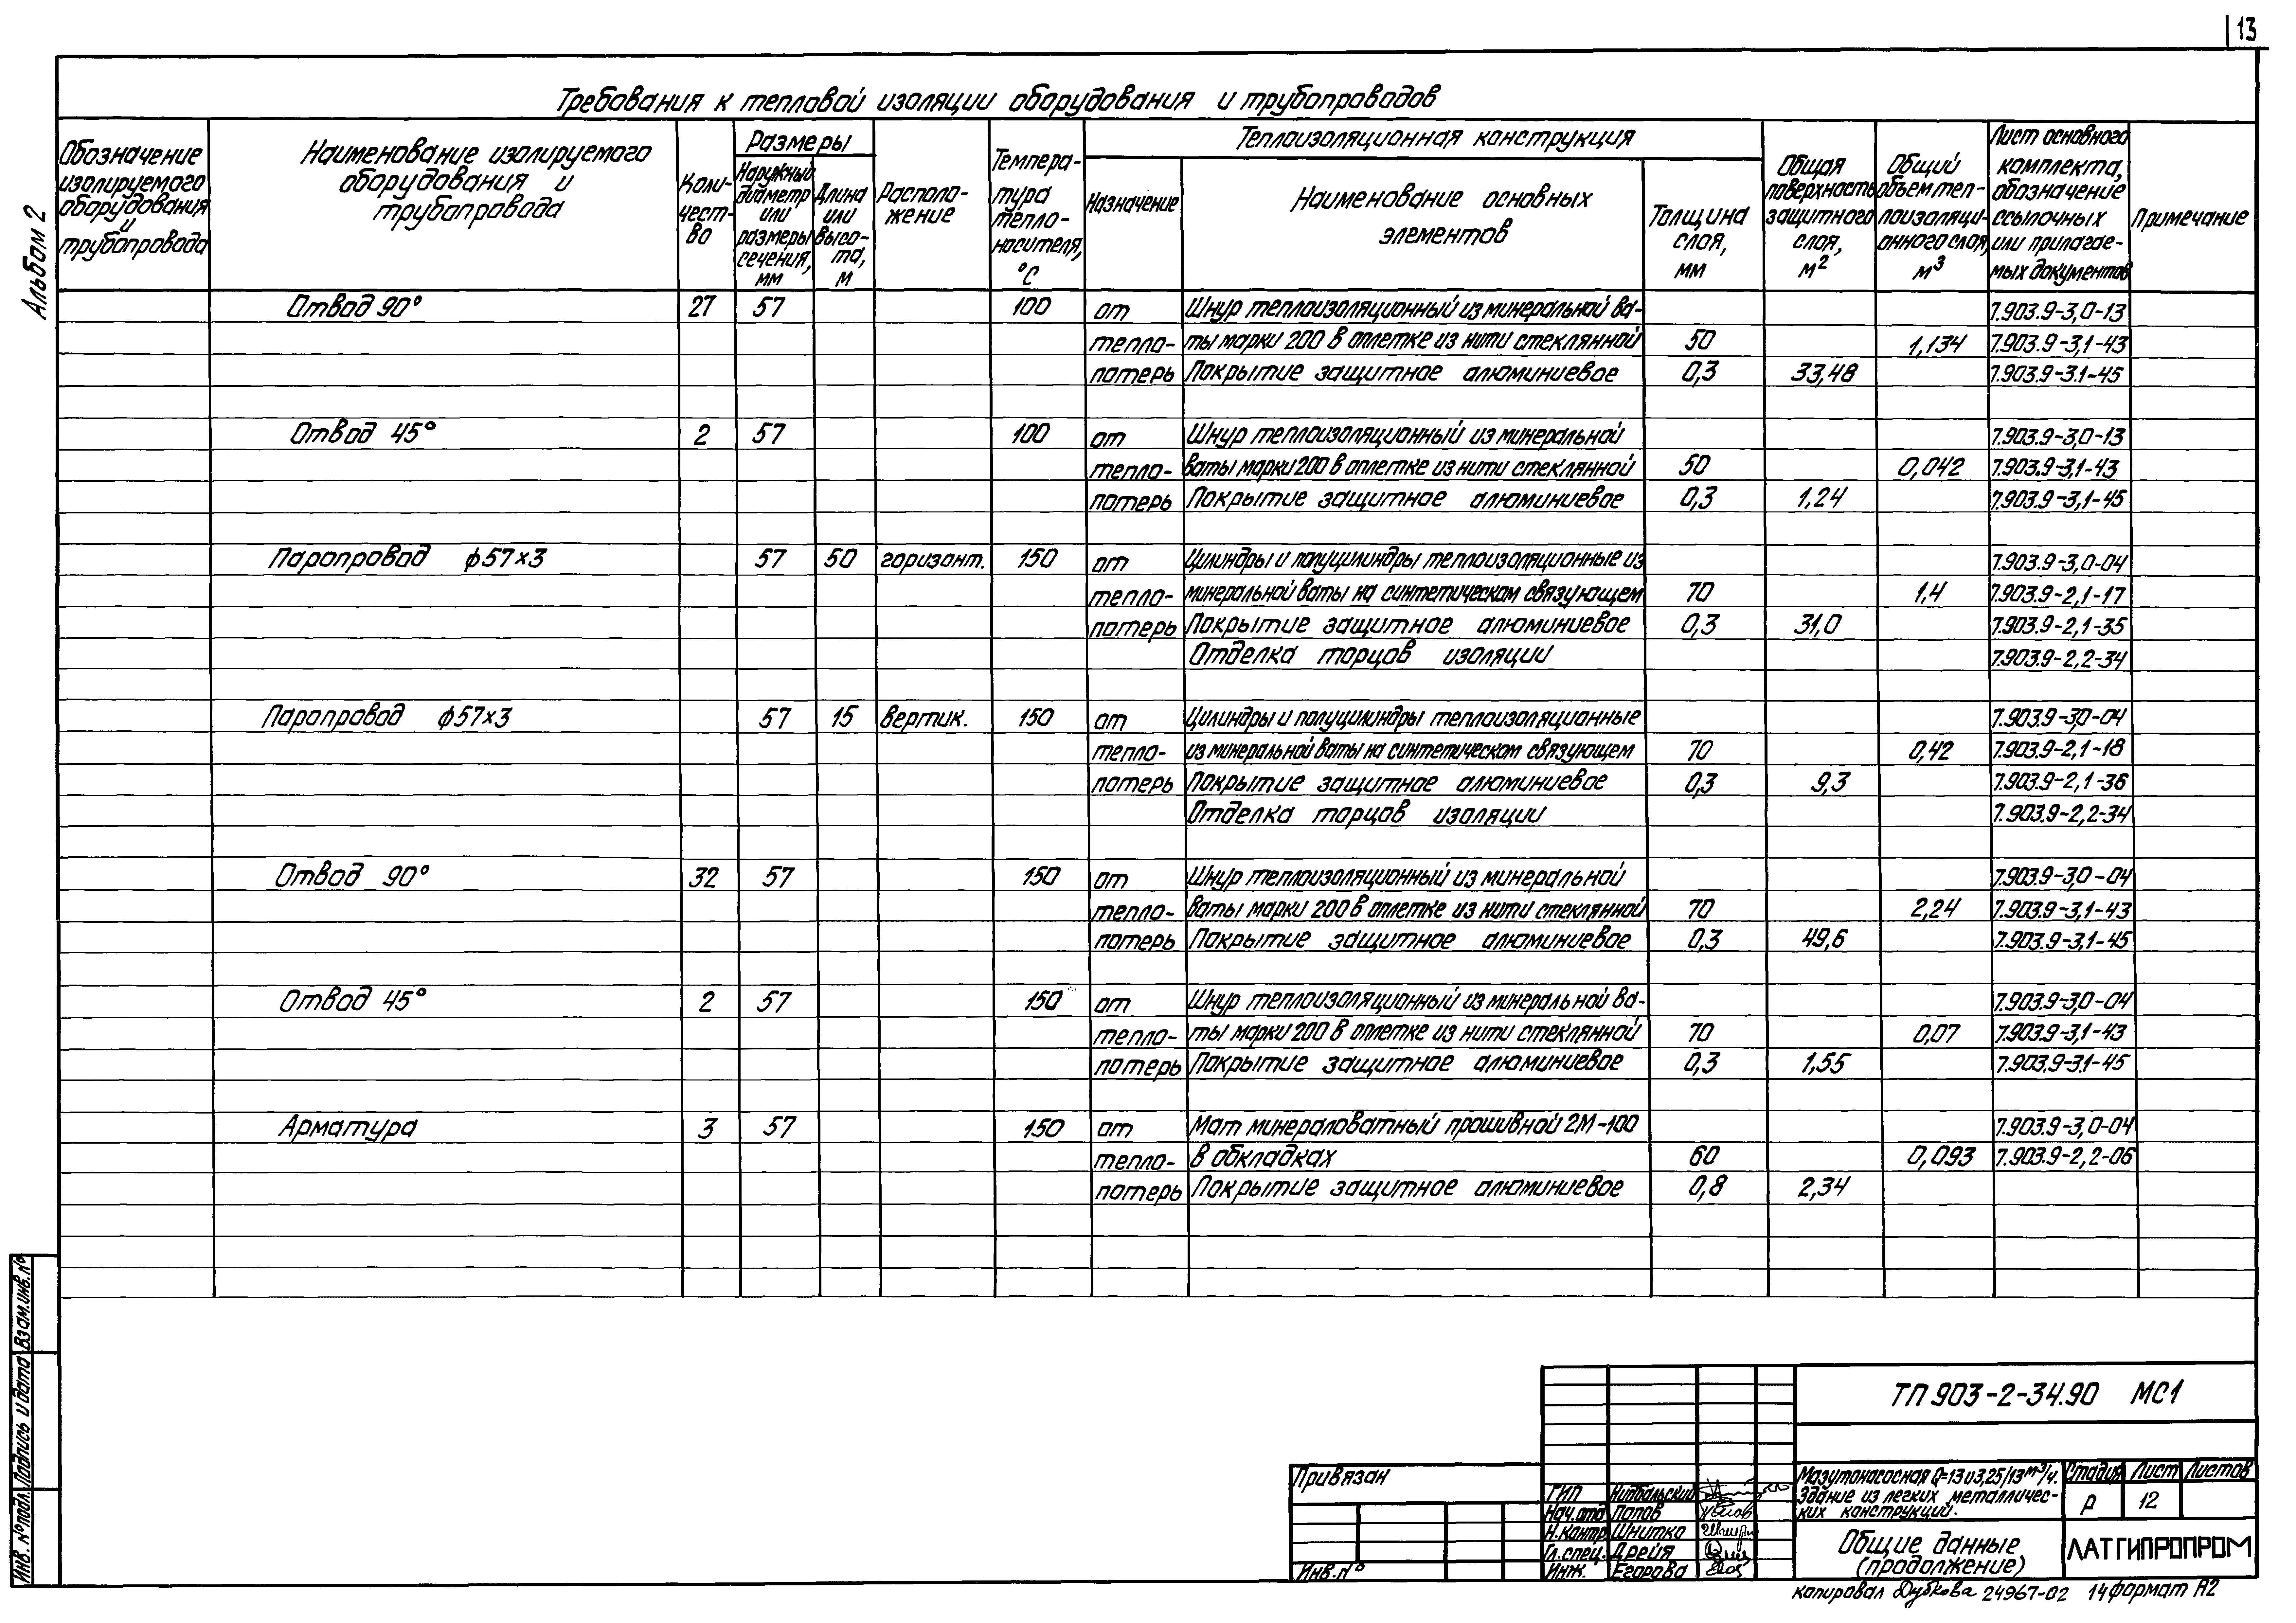 13
Альбом 2
Требования к тепловой изоляции оборудования и трубопроводов
Обозначение
изолируемого
оборудования
и
трубопровода
Наименование изолируемого
оборудования и
трубопровода
Коли-
чест-
во
Размеры
Наружный
диаметр
или
размеры
сечения,
мм
Длина
или
высо-
та,
м
Располо-
жение
Темпера-
тура
тепло-
носителя,
°С
Теплоизоляционная конструкция
Назначение
Наименование основных
элементов
Толщина
слоя,
мм
Общая
поверхность
защитного
слоя,
м2
Общий
объем теп-
лоизоляци-
онного слоя,
м3
Лист основного
комплекта,
обозначение
ссылочных
или прилагае-
мых документов
Примечание
Отвод 90° 27 57 100 от Шнур теплоизоляционный из минеральной ва- 7.903.9-3,0-13
тепло- ты марки 200 в оплетке из нити стеклянной 50 1,134 7.903.9-3,1-43
потерь Покрытие защитное алюминиевое 0,3 33,48 7.903.9-3.1-45
Отвод 45° 2 57 100 от Шнур теплоизоляционный из минеральной 7.903.9-3,0-13
тепло- ваты марки 200 в оплетке из нити стеклянной 50 0,042 7.903.9-3,1-43
потерь Покрытие защитное алюминиевое 0,3 1,24 7.903.9-3,1-45
Паропровод ф57×3 57 50 горизонт. 150 от Цилиндры и полуцилиндры теплоизоляционные из 7.903.9-3,0-04
тепло- минеральной ваты на синтетическом связующем 70 1,4 7.903.9-2,1-17
потерь Покрытие защитное алюминиевое 0,3 31,0 7.903.9-2,1-35
Отделка торцов изоляции 7.903.9-2,2-34
Паропровод ф57×3 57 15 вертик. 150 от Цилиндры и полуцилиндры теплоизоляционные 7.903.9-3,0-04
тепло- из минеральной ваты на синтетическом связующем 70 0,42 7.903.9-2,1-18
потерь Покрытие защитное алюминиевое 0,3 9,3 7.903.9-2,1-36
Отделка торцов изоляции 7.903.9-2,2-34
Отвод 90° 32 57 150 от Шнур теплоизоляционный из минеральной 7.903.9-3,0-04
тепло- ваты марки 200 в оплетке из нити стеклянной 70 2,24 7.903.9-3,1-43
потерь Покрытие защитное алюминиевое 0,3 49,6 7.903.9-3,1-45
Отвод 45° 2 57 150 от Шнур теплоизоляционный из минеральной ва- 7.903.9-3,0-04
тепло- ты марки 200 в оплетке из нити стеклянной 70 0,07 7.903.9-3,1-43
потерь Покрытие защитное алюминиевое 0,3 1,55 7.903.9-3.1-45
Арматура 3 57 150 от Мат минераловатный прошивной 2М-100 7.903.9-3,0-04
тепло- в обкладках 60 0,093 7.903.9-2,2-06
потерь Покрытие защитное алюминиевое 0,8 2,34
Инв. № подл. Подпись и дата Взам. инв. №
ТП 903-2-34.90 МС1
Привязан
Инв. №
ГИП
Нач. отд. Попов
Н. контр. Шнитко
Гл. спец. Дрейя
Инж. Егорова
Мазутонасосная Q=13 и 3,25/13 м3/ч.
Здание из легких металличес-
ких конструкций.
Стадия Лист Листов
р 12
Общие данные
(продолжение)
ЛАТГИПРОПРОМ
копировал Дубкова 24967-02 14 формат А2